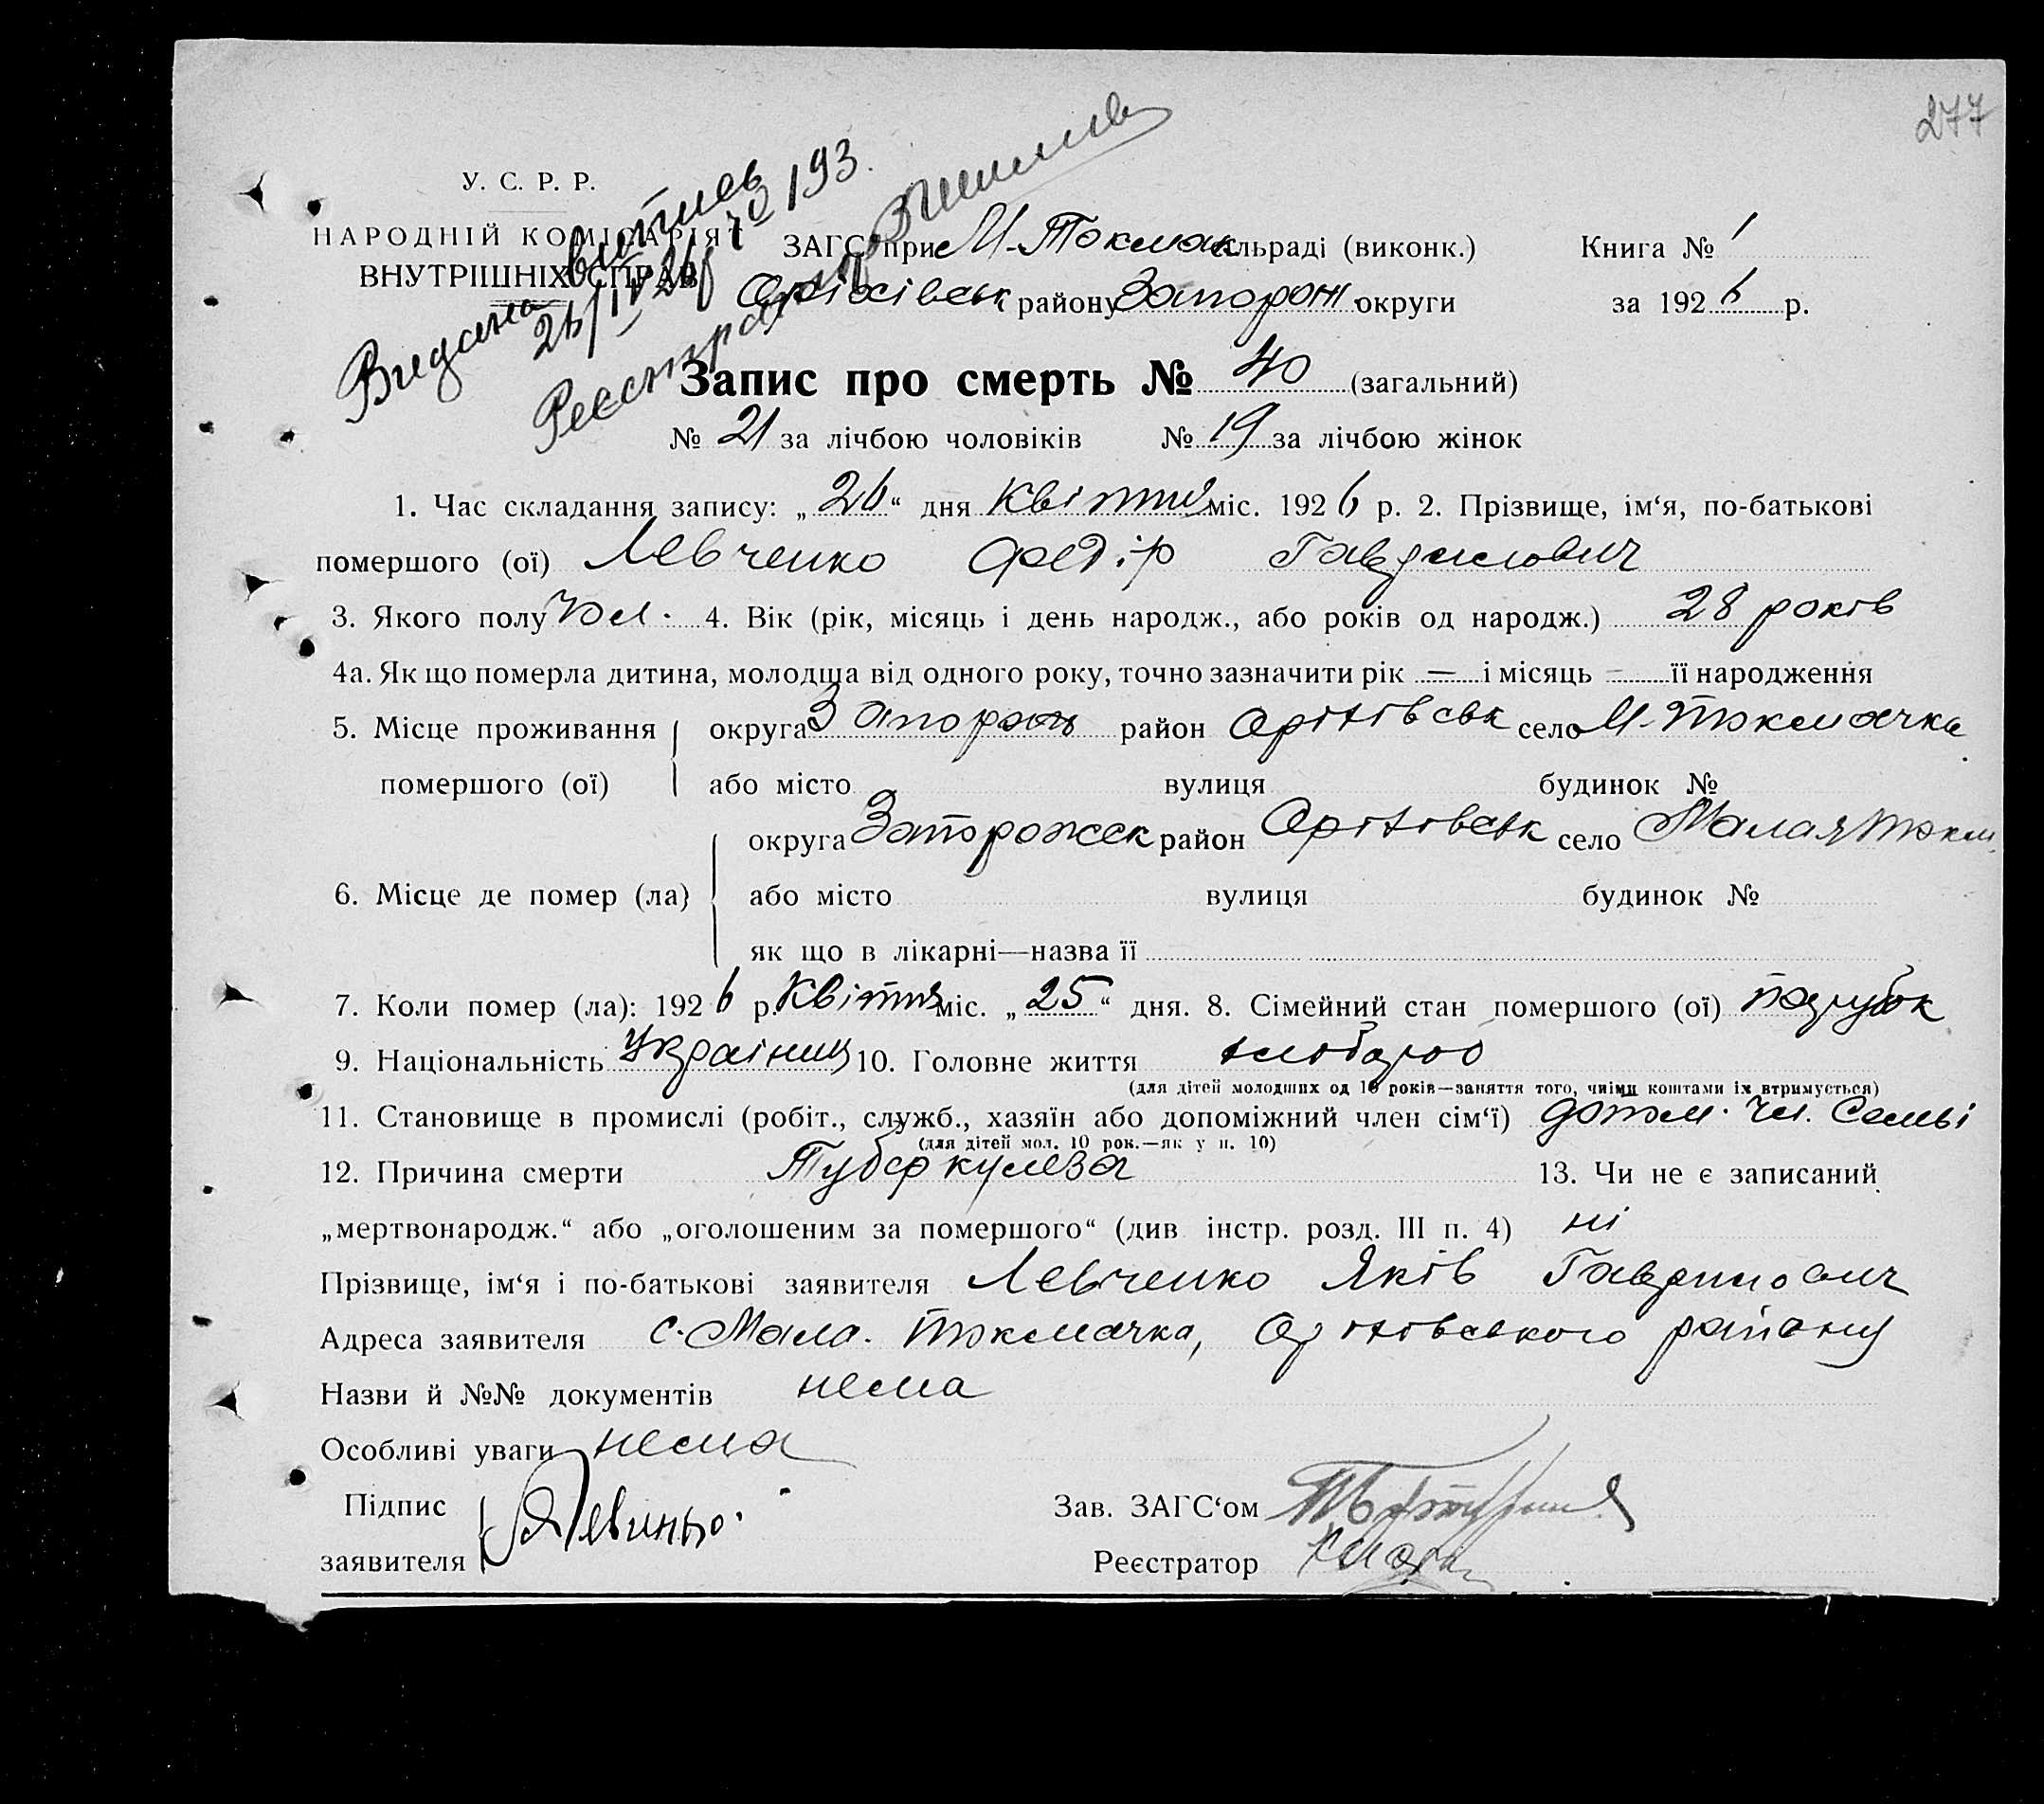 277
У. С. Р. Р.
НАРОДНІЙ КОМІСАРІЯТ
ВНУТРІШНІХ СПРАВ
Видана витяг
26/IV 26 р № 193.
Реєстратор
ЗАГС при М-Токмач сільраді (виконк.) Книга № 1
Оріхівськ району Запорож. округи за 1926 р.
Запис про смерть № 40 (загальний)
№ 21 за лічбою чоловіків № 19 за лічбою жінок
1. Час складання запису: „26“ дня Квітня міс. 1926 р. 2. Прізвище, ім‘я, по-батькові
помершого (ої) Левченко Федір Гаврилович
3. Якого полу чол. 4. Вік (рік, місяць і день народж., або років од народж.) 28 років
4а. Як що померла дитина, молодша від одного року, точно зазначити рік — і місяць — її народження
5. Місце проживання округа Запорож район Оріхівськ село М-Токмачка
помершого (ої) або місто вулиця будинок №
округа Запорожск район Оріхівськ село Малая Токм.
6. Місце де помер (ла) або місто вулиця будинок №
як що в лікарні—назва її
7. Коли помер (ла): 1926 р. Квітня міс. „25“ дня. 8. Сімейний стан помершого (ої) парубок
9. Національність Українц 10. Головне життя хлібороб
(для дітей молодших од 10 років—заняття того, чиїми коштами їх втримується)
11. Становище в промислі (робіт., служб., хазяїн або допоміжний член сім‘ї) допом. чл. Семьі
(для дітей мол. 10 рок.—як у п. 10)
12. Причина смерти Туберкулеза 13. Чи не є записаний
„мертвонародж.“ або „оголошеним за помершого“ (див інстр. розд. III п. 4) ні
Прізвище, ім‘я і по-батькові заявителя Левченко Яків Гаврилович
Адреса заявителя с. Мала. Токмачка, Оріхівського району
Назви й №№ документів нема
Особливі уваги нема
Підпис Зав. ЗАГС‘ом
заявителя Реєстратор